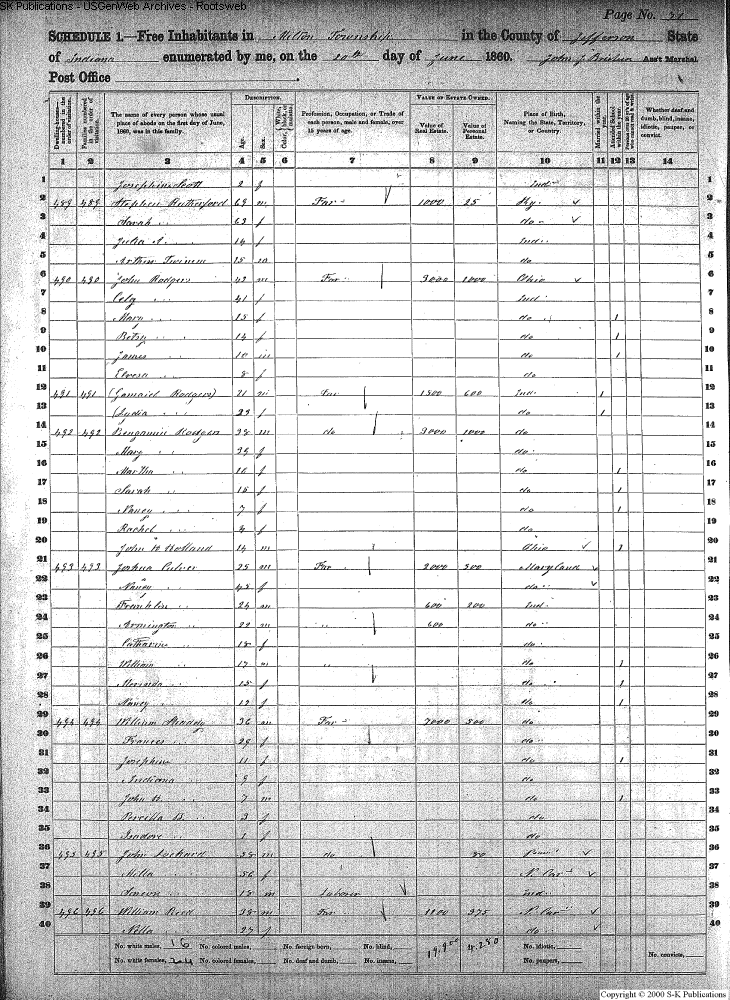 S-K Publications - USGenWeb Archives - Rootsweb
Page No. 71
SCHEDULE 1.—Free Inhabitants in Milton Township in the County of Jefferson State
of Indiana enumerated by me, on the 20th day of June 1860. John J. Ass't Marshal
Post Office
DESCRIPTION. VALUE OF ESTATE OWNED.
Dwelling-houses—numbered in the order of visitation. Families numbered in the order of visitation. The name of every person whose usual place of abode on the first day of June, 1860, was in this family. Age. Sex. Color, White, black, or mulatto. Profession, Occupation, or Trade of each person, male and female, over 15 years of age. Value of Real Estate. Value of Personal Estate. Place of Birth, Naming the State, Territory, or Country. Married within the year. Attended School within the year. Persons over 20 y'rs of age who cannot read & write. Whether deaf and dumb, blind, insane, idiotic, pauper, or convict.
1 2 3 4 5 6 7 8 9 10 11 12 13 14
1 Josephine Scott 2 f Ind 1
2 489 489 Stephen Rutherford 69 m Far 1000 25 Ky 2
3 Sarah 63 f do 3
4 Julia A. 14 f Ind 4
5 Arthur 15 m do 5
6 490 490 John Rodgers 43 m Far 3000 1000 Ohio 6
7 Cely 41 f Ind 7
8 Mary 15 f do 1 8
9 Betsy 14 f do 1 9
10 James 10 m do 1 10
11 8 f do 11
12 491 491 Gamaiel Rodgers 21 m Far 1500 600 Ind 1 12
13 Lydia 23 f do 1 13
14 492 492 Bengamin Rodgers 38 m do 3000 1000 do 14
15 Mary 39 f do 15
16 Martha 16 f do 1 16
17 Sarah 15 f do 1 17
18 Nancy 7 f do 1 18
19 Rachel f do 19
20 John Holland 14 m Ohio 1 20
21 493 493 Joshua Culver m Far 2000 300 Maryland 21
22 Nancy 48 f do 22
23 Franklin 24 m 600 200 Ind 23
24 Armington 22 m 600 do 24
25 Catharine 18 f do 25
26 William 17 m do 1 26
27 15 f do 1 27
28 Nancy 12 f do 1 28
29 494 494 William 36 m Far 7000 500 do 29
30 Frances 29 f do 30
31 Josephine 11 f do 1 31
32 Indiana 9 f do 32
33 John 7 m do 1 33
34 3 f do 34
35 Isadore 1 f do 35
36 495 495 John Lockard m do Penn 36
37 Milla 56 f N Car 37
38 18 m Laborer Ind 38
39 496 496 William Reed 38 m Far 1100 375 N Car 39
40 Nilla 27 f do 40
No. white males, 16 No. colored males, No. foreign born, No. blind, No. idiotic,
No. white females, 24 No. colored females, No. deaf and dumb, No. insane, No. paupers, No. convicts,
Copyright © 2000 S-K Publications